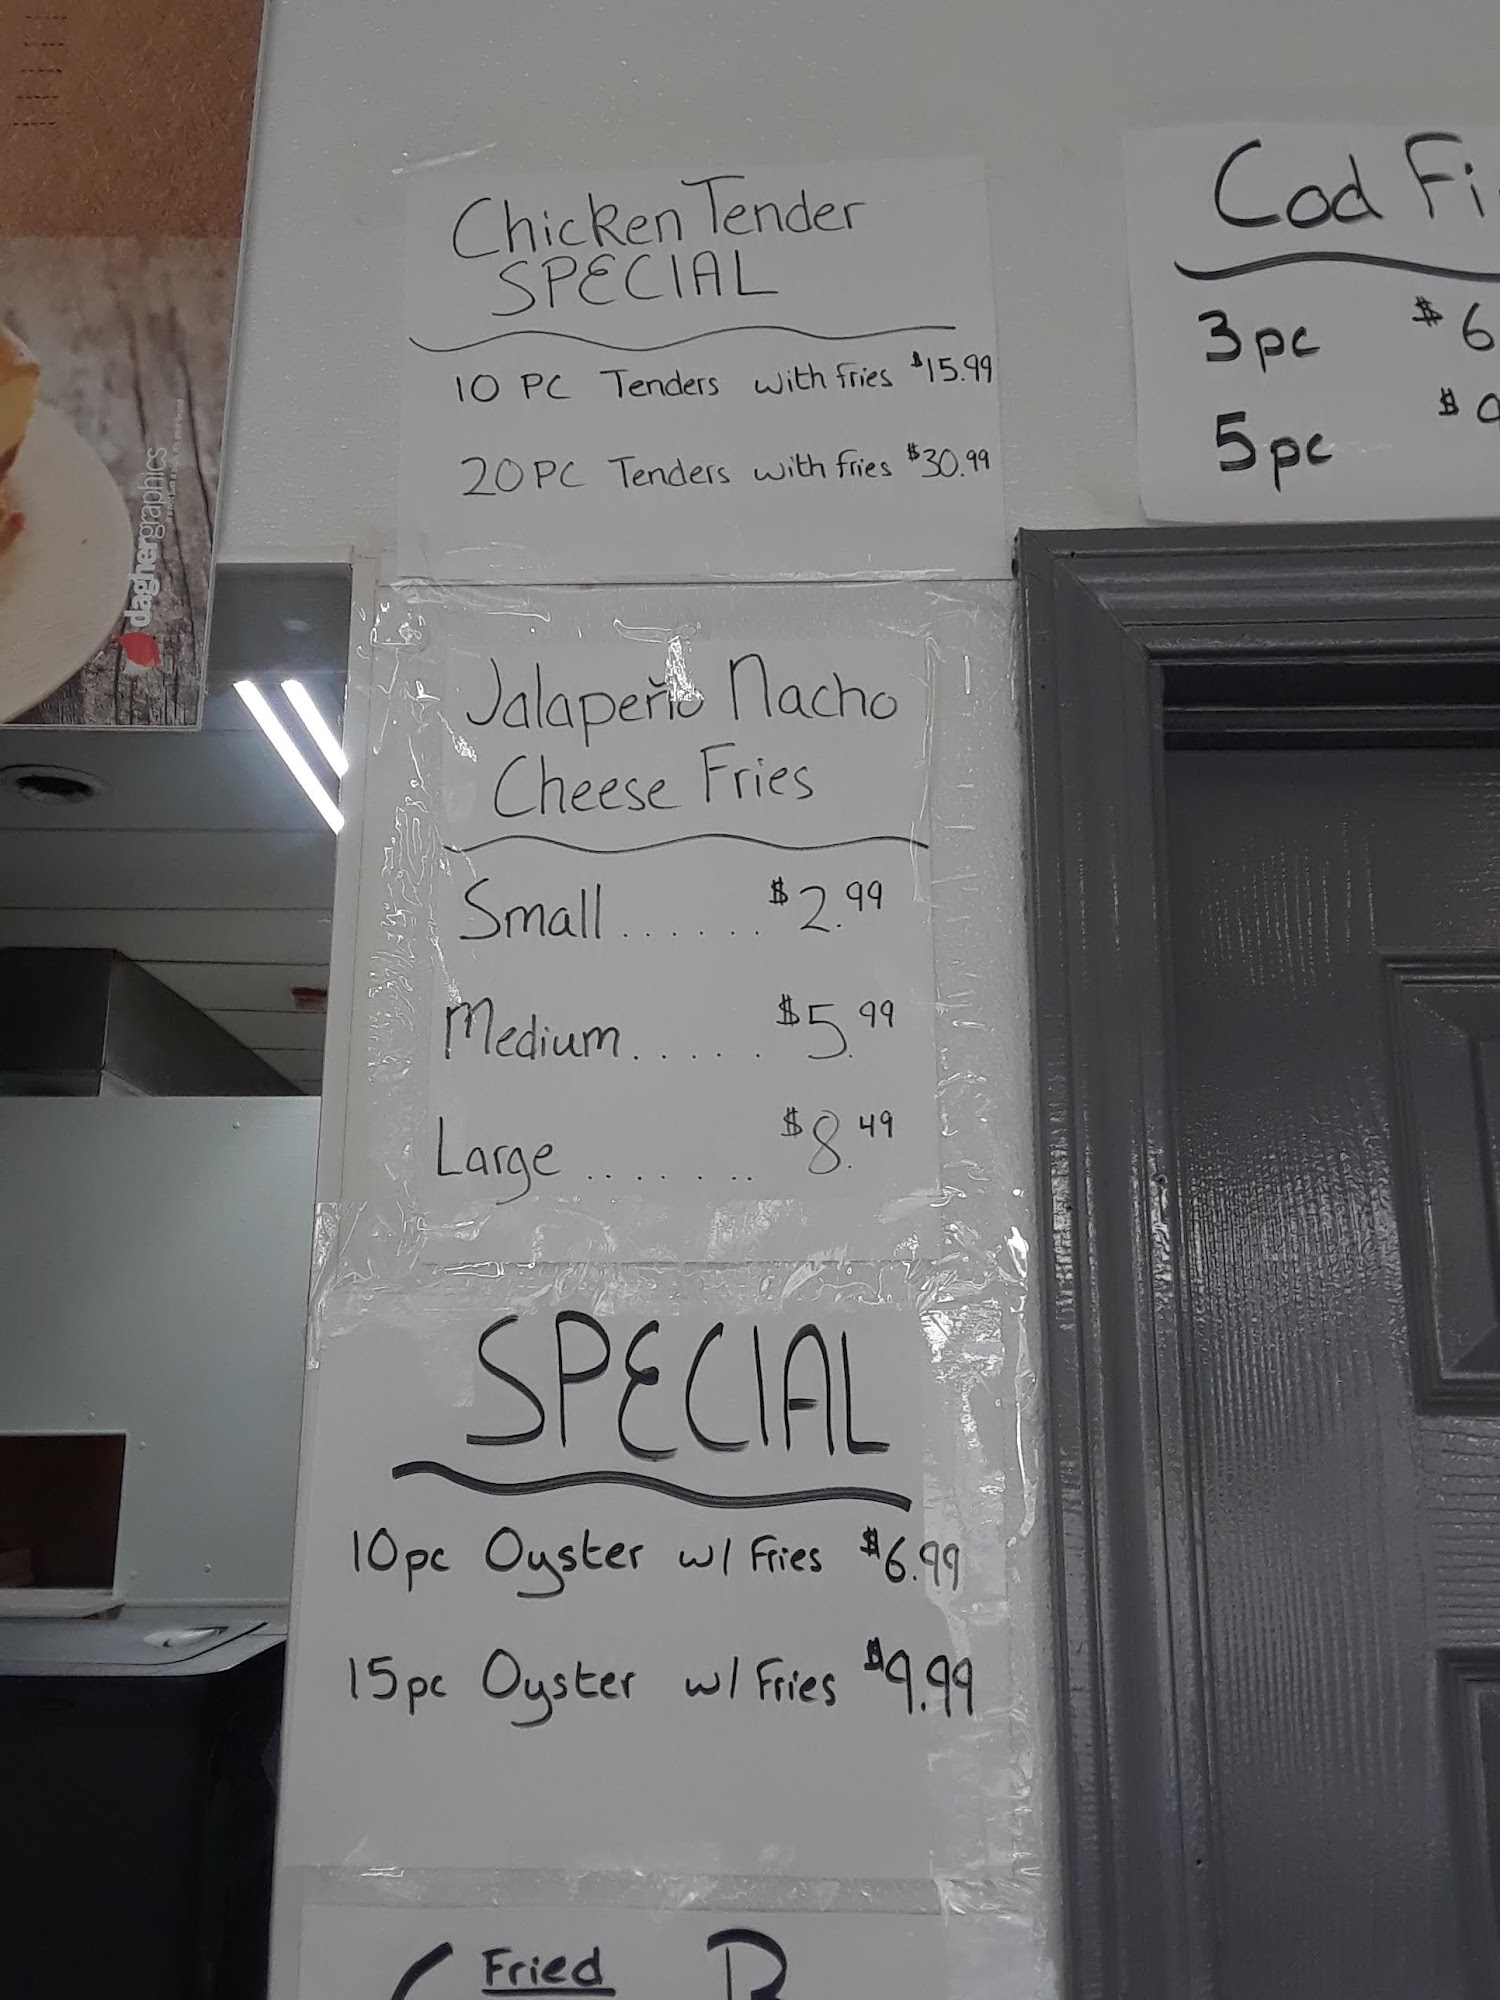 Chicken Tender
SPECIAL
10 PC Tenders with fries $15.99
20 PC Tenders with fries $30.99
Jalapeño Nacho
Cheese Fries
Small...... $2.99
Medium..... $5.99
Large ....... $8.49
SPECIAL
10pc Oyster w/ Fries $6.99
15pc Oyster w/ Fries $9.99
Fried
Cod Fi
3pc $6
5pc $9
daghergraphics